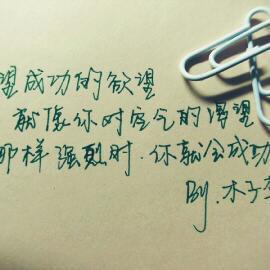 望成功的欲望
就像你对空气的渴望
那样强烈时.你就会成功
By.木子李